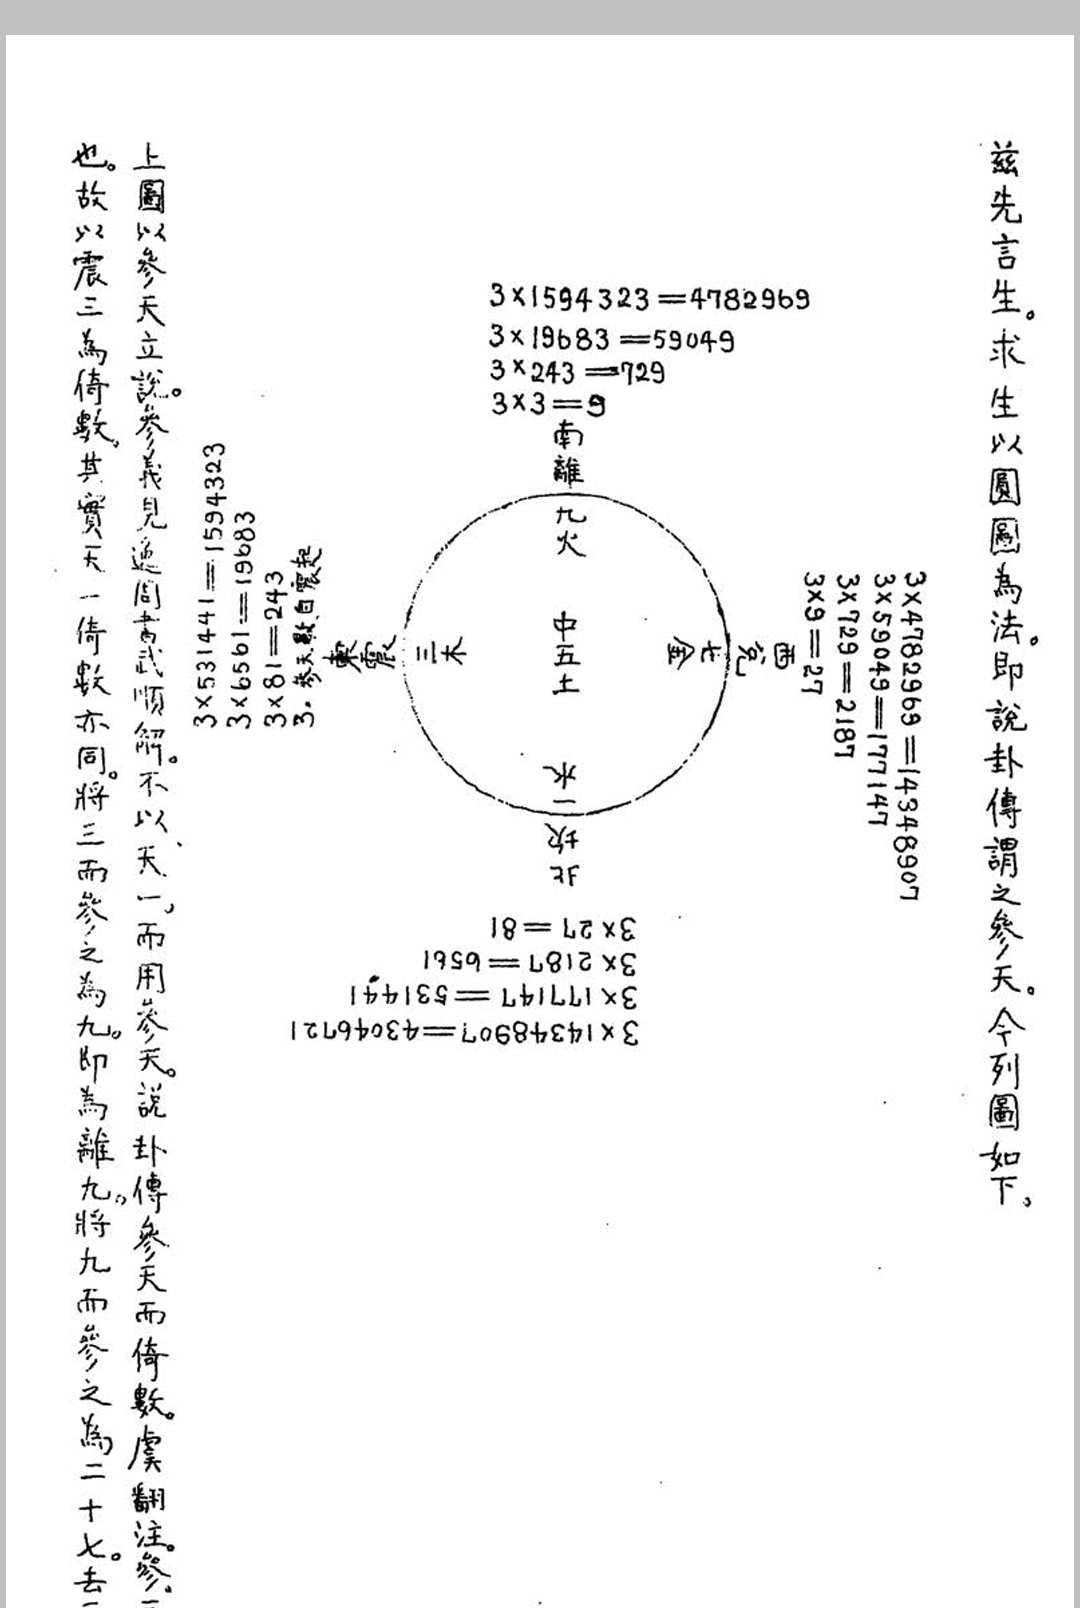 茲先言生。求生以圓圖為法。即說卦傳謂之參天。今列圖如下。
3×1594323=4782969
3×19683=59049
3×243=729
3×3=9
南離
九火
中五土
三木
東震
3。參天數自震起
3×81=243
3×6561=19683
3×531441=1594323
七金
西兌
3×9=27
3×729=2187
3×59049=177147
3×4782969=14348907
一水
北坎
3×27=81
3×2187=6561
3×177147=531441
3×14348907=43046721
上圖以參天立說。參義見逸周書武順解。不以天一,而用參天。說卦傳參天而倚數。虞翻注。參。
也。故以震三為倚數。其實天一倚數亦同。將三而參之為九。即為離九。將九而參之為二十七。去